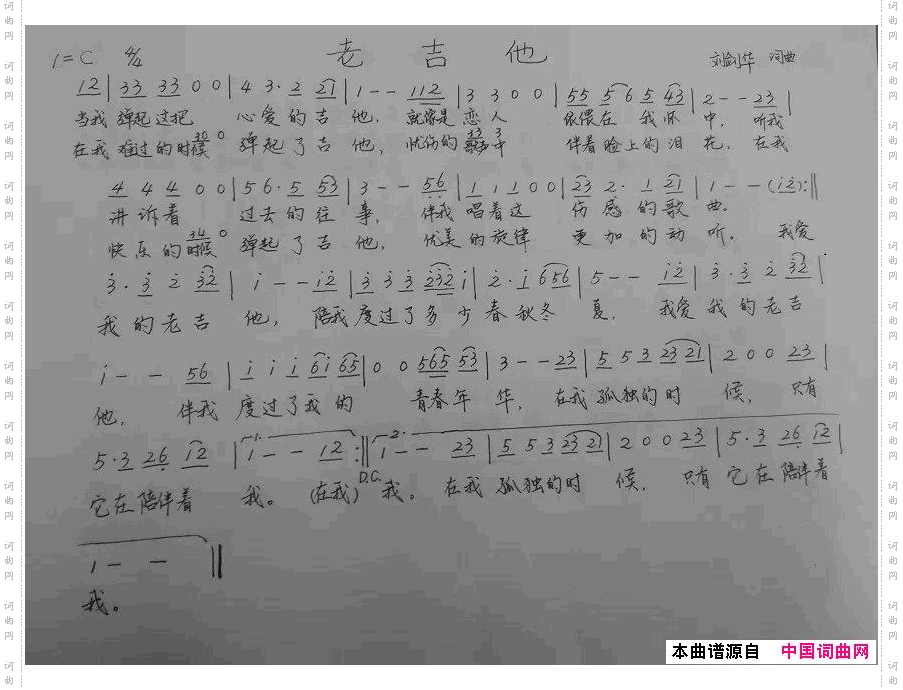 1=C 4/4 老 吉 他 刘剑华 词曲
12 | 33 33 0 0 | 4 3·2 21 | 1 - - 112 | 3 3 0 0 | 55 5 6 5 43 | 2 - - 23 |
当我 弹起 这把 心爱的吉 他, 就像是 恋人 依偎在 我怀 中, 听我
在我 难过的时候 30 0 弹起了吉 他, 忧伤的 歌声中 33 3 伴着脸上的泪 花, 在我
4 4 4 0 0 | 5 6·5 53 | 3 - - 56 | 1 1 1 0 0 | 23 2· 1 21 | 1 - - (12):‖
讲诉着 过去的往 事, 伴我 唱着这 伤感的歌 曲。
快乐的时候 34 0 弹起了吉 他, 优美的旋律 更加的动 听。 我爱
3·3 2 32 | 1 - - 12 | 3 3 3 232 1 | 2·1 656 | 5 - - 12 | 3·3 2 32 |
我的老吉 他, 陪我度过了多少春秋冬 夏, 我爱我的老吉
1 - - 56 | 1 1 1 61 65 | 0 0 565 53 | 3 - - 23 | 5 5 3 23 21 | 2 0 0 23 |
他, 伴我 度过了我的 青春年 华, 在我孤独的时 候, 只有
5·3 26 12 | 1. 1 - - 12 :‖ 2. 1 - - 23 | 5 5 3 23 21 | 2 0 0 23 | 5·3 26 12 |
D.C.
它在陪伴着 我。 (在我) 我。 在我 孤独的时 候, 只有 它在陪伴着
1 - - ‖
我。
本曲谱源自 中国词曲网